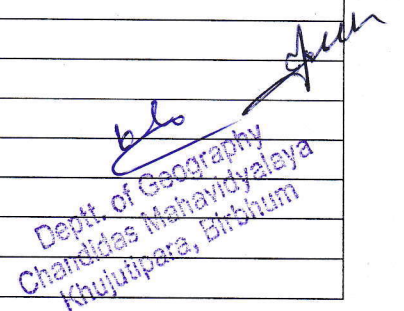 Deptt. of Geography
Chandidas Mahavidyalaya
Khujutipara, Birbhum